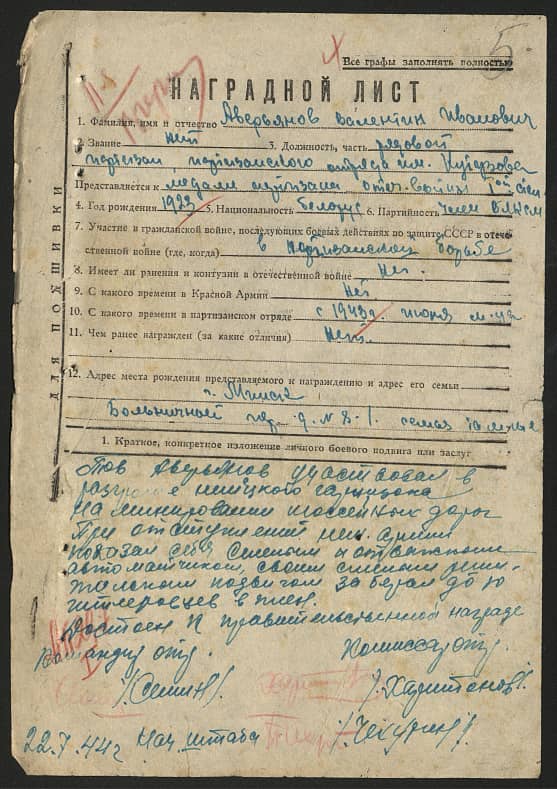 5
Все графы заполнять полностью
НАГРАДНОЙ ЛИСТ
1. Фамилия, имя и отчество Аверьянов Валентин Иванович
2. Звание нет 3. Должность, часть рядовой
партизан, партизанского отряда им. Кутузова
Представляется к медали партизана отеч. войны 1ой степ.
4. Год рождения 1923 5. Национальность белорус 6. Партийность член ВЛКСМ
7. Участие в гражданской войне, последующих боевых действиях по защите СССР в отече-
ственной войне (где, когда) в партизанской борьбе
8. Имеет ли ранения и контузии в отечественной войне Нет.
9. С какого времени в Красной Армии Нет
10. С какого времени в партизанском отряде с 1943г. июня м-ца
11. Чем ранее награжден (за какие отличия) Нет.
12. Адрес места рождения представляемого к награждению и адрес его семьи
г. Минск
Больничный пер. д. N 8-1. семья там же
ДЛЯ ПОДШИВКИ
1. Краткое, конкретное изложение личного боевого подвига или заслуг
Тов Аверьянов участвовал в
разгроме немецкого гарнизона
На минировании шоссейных дорог
При отступлений нем. армии
показал себя смелым и отважным
автоматчиком, своим смелым
подвигом забрал до 10
гитлеровцев в плен.
Достоен к правительственной награде
Командир отр. Комиссар отр.
/Семин/ /Харитонов/
22.7.44г Нач штаба /Чекурин/